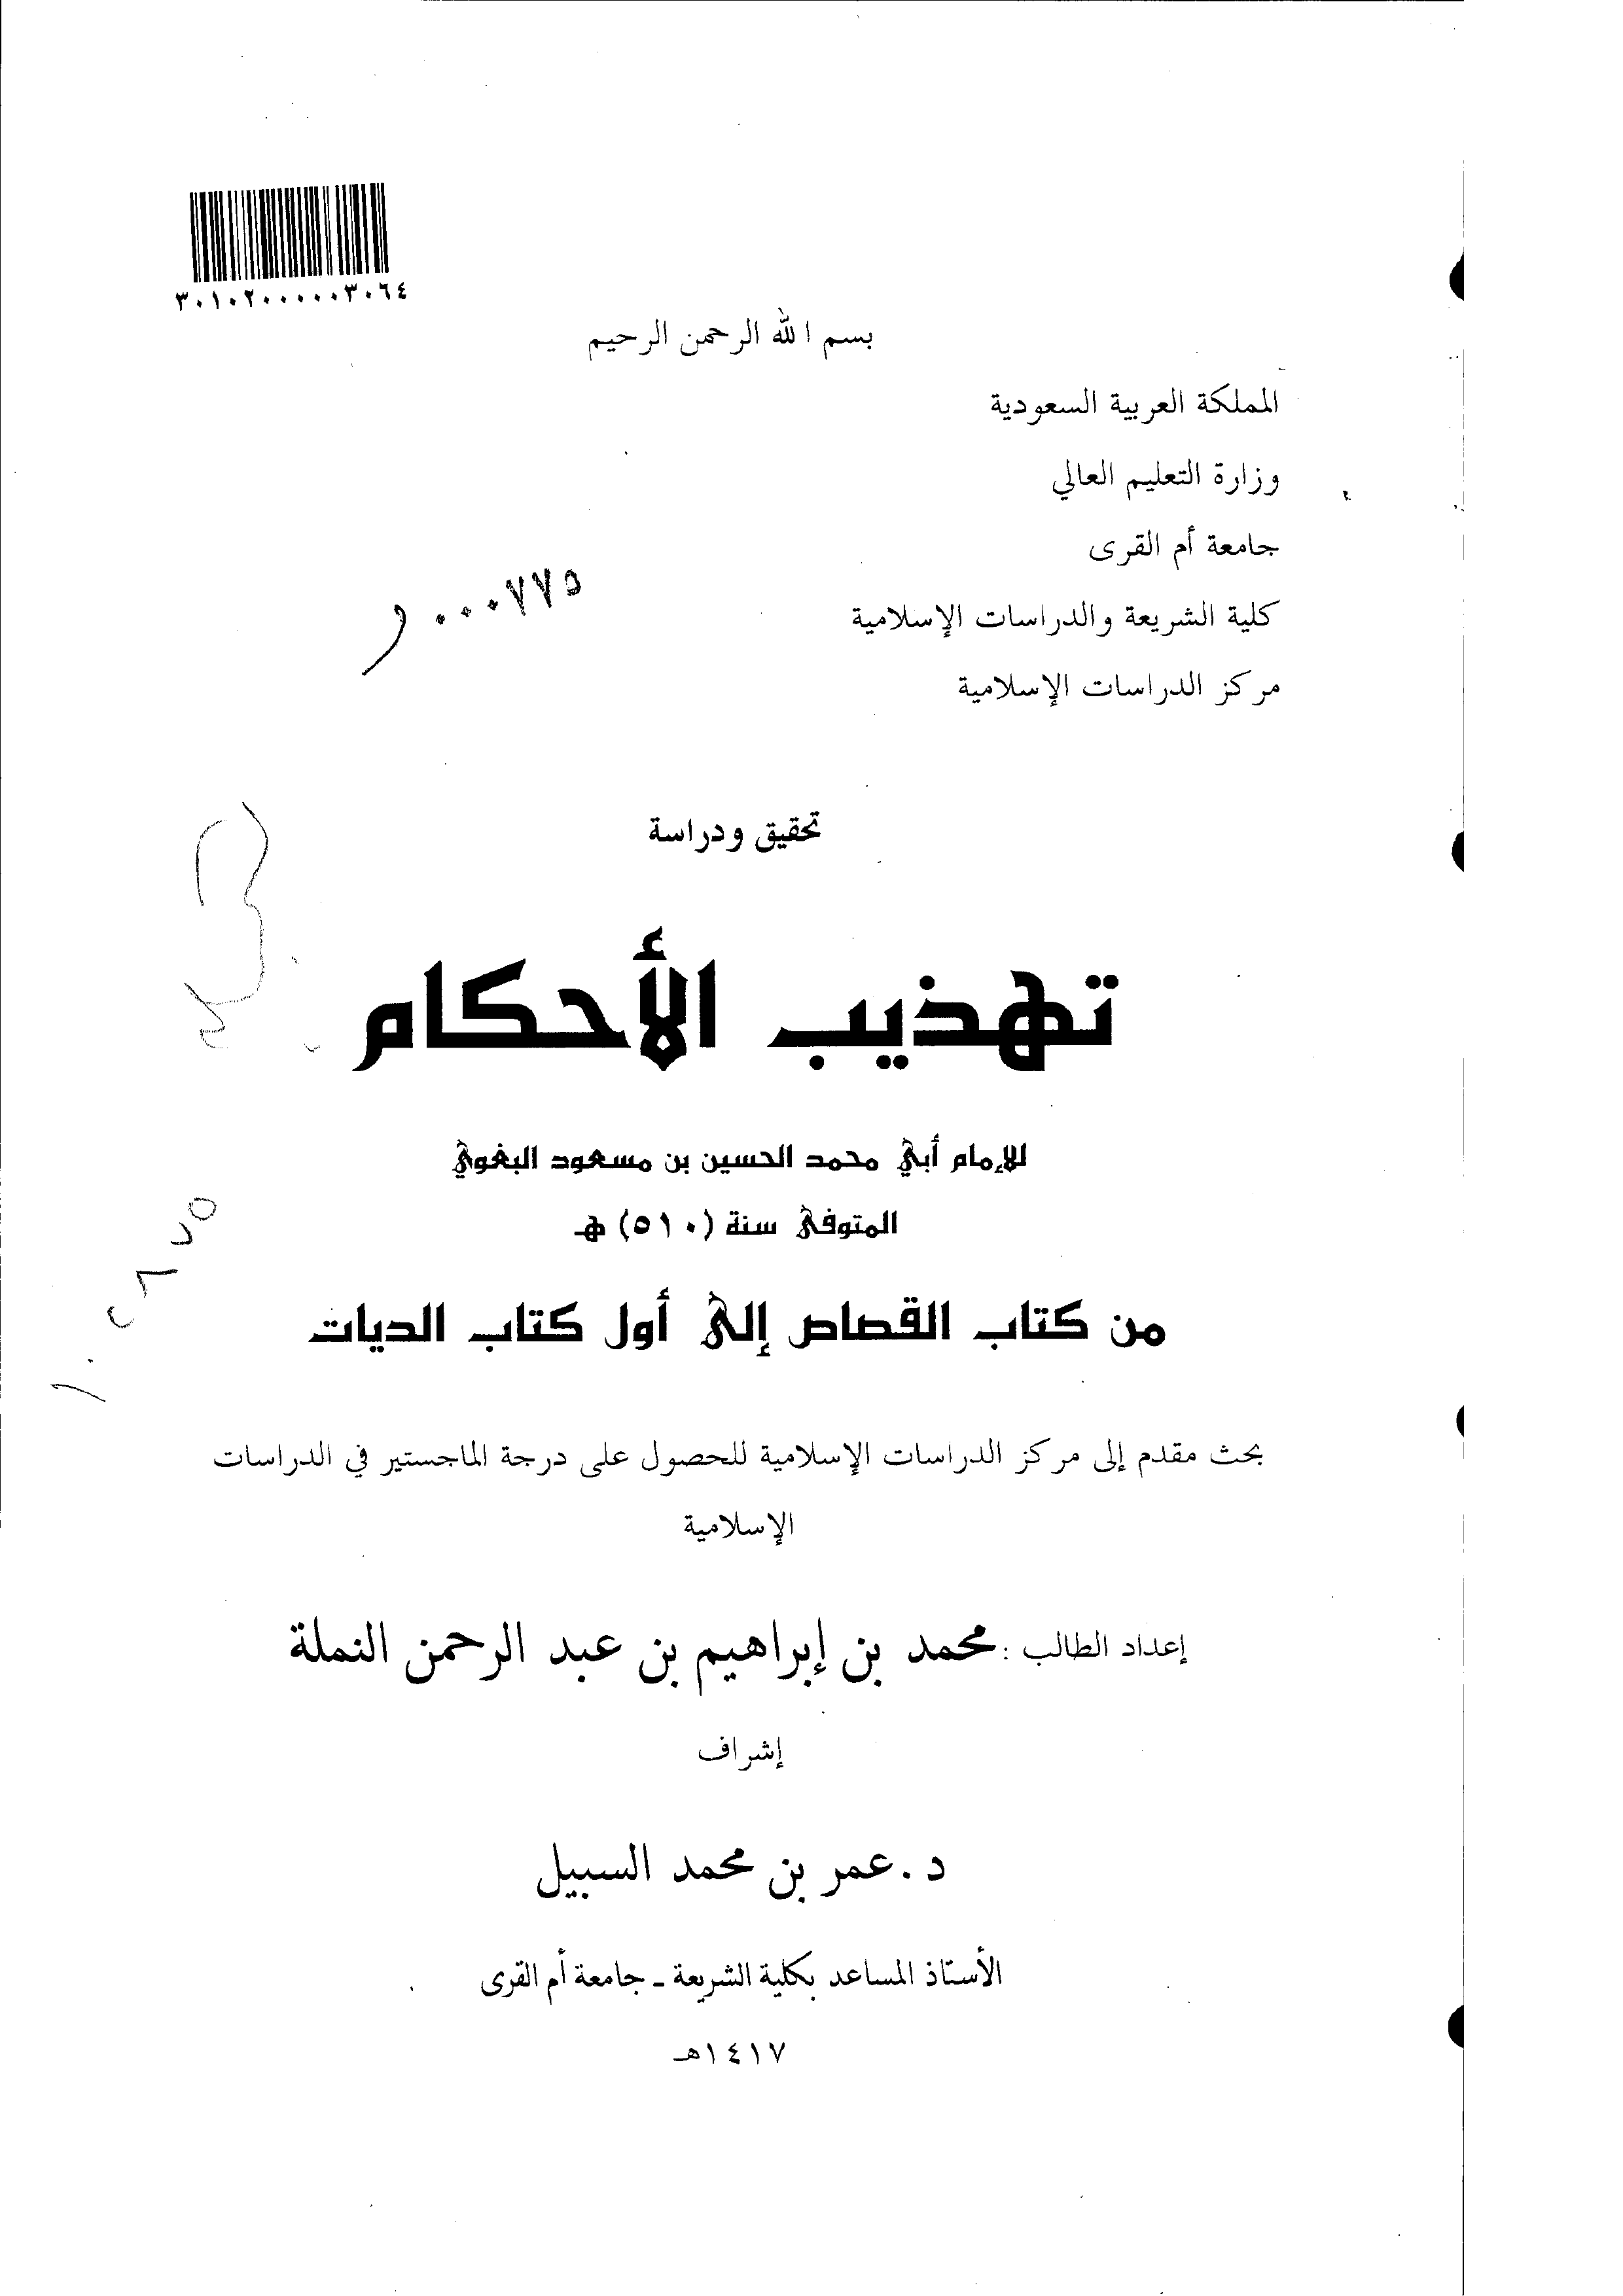 ٣٠١٠٢٠٠٠٠٠٣٠٦٤
بسم الله الرحمن الرحيم
المملكة العربية السعودية
وزارة التعليم العالي
جامعة أم القرى
٠٠٠٧٧٥
كلية الشريعة والدراسات الإسلامية
مركز الدراسات الإسلامية
تحقيق ودراسة
تهذيب الأحكام
للإمام أبي محمد الحسين بن مسعود البغوي
المتوفى سنة (٥١٠) هـ
من كتاب القصاص إلى أول كتاب الديات
بحث مقدم إلى مركز الدراسات الإسلامية للحصول على درجة الماجستير في الدراسات
الإسلامية
إعداد الطالب : محمد بن إبراهيم بن عبد الرحمن النملة
إشراف
د . عمر بن محمد السبيل
الأستاذ المساعد بكلية الشريعة - جامعة أم القرى
١٤١٧هـ